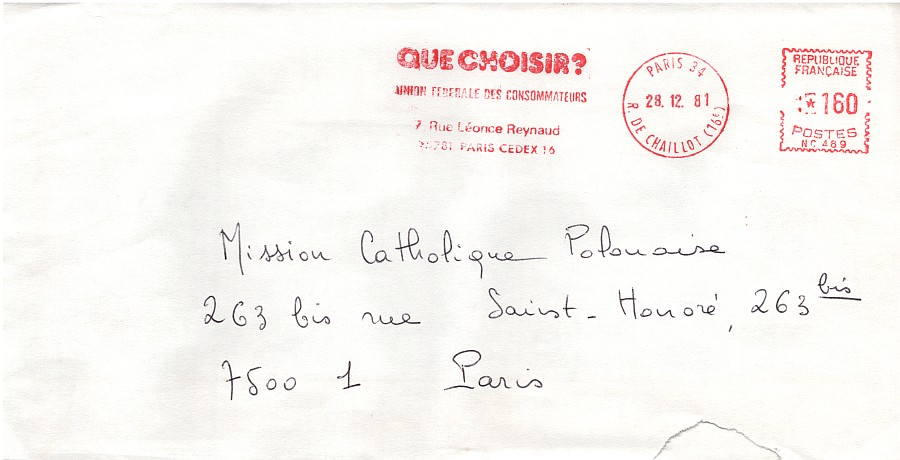 QUE CHOISIR?
UNION FEDERALE DES CONSOMMATEURS
7 Rue Léonce Reynaud
75781 PARIS CEDEX 16
PARIS 34
28.12.81
R. DE CHAILLOT (16e)
REPUBLIQUE
FRANÇAISE
160
POSTES
NC 489
Mission Catholique Polonaise
263 bis rue Saint-Honoré, 263 bis
75001 Paris